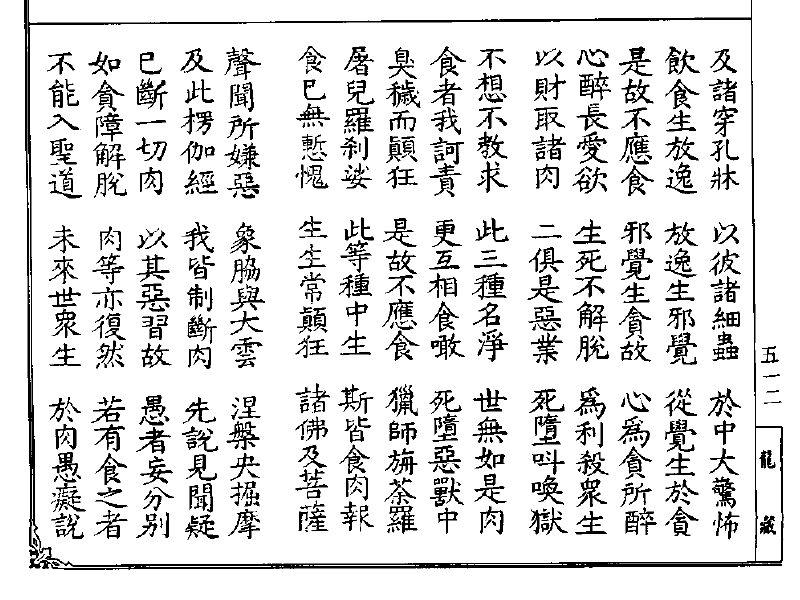 及諸穿孔牀　以彼諸細蟲　於中大驚怖
飲食生放逸　放逸生邪覺　從覺生於貪
是故不應食　邪覺生貪故　心為貪所醉
心醉長愛欲　生死不解脫　為利殺眾生
以財取諸肉　二俱是惡業　死墮叫喚獄
不想不教求　此三種名淨　世無如是肉
食者我訶責　更互相食噉　死墮惡獸中
臭穢而顛狂　是故不應食　獵師旃荼羅
屠兒羅剎娑　此等種中生　斯皆食肉報
食已無慙愧　生生常顛狂　諸佛及菩薩
聲聞所嫌惡　象脇與大雲　涅槃央掘摩
及此楞伽經　我皆制斷肉　先說見聞疑
已斷一切肉　以其惡習故　愚者妄分別
如貪障解脫　肉等亦復然　若有食之者
不能入聖道　未來世眾生　於肉愚癡說
五一二
龍藏